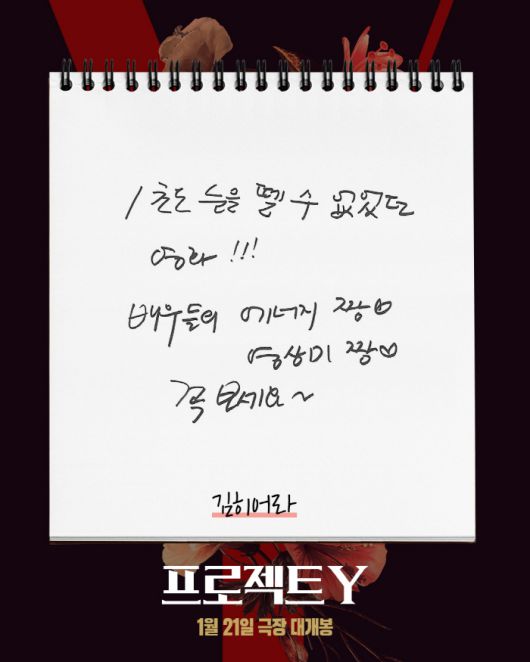 1초도 눈을 뗄 수 없었던
영화!!!
배우들의 에너지 짱♡
영상미 짱♡
꼭 보세요~
김히어라
프로젝트 Y
1월 21일 극장 대개봉